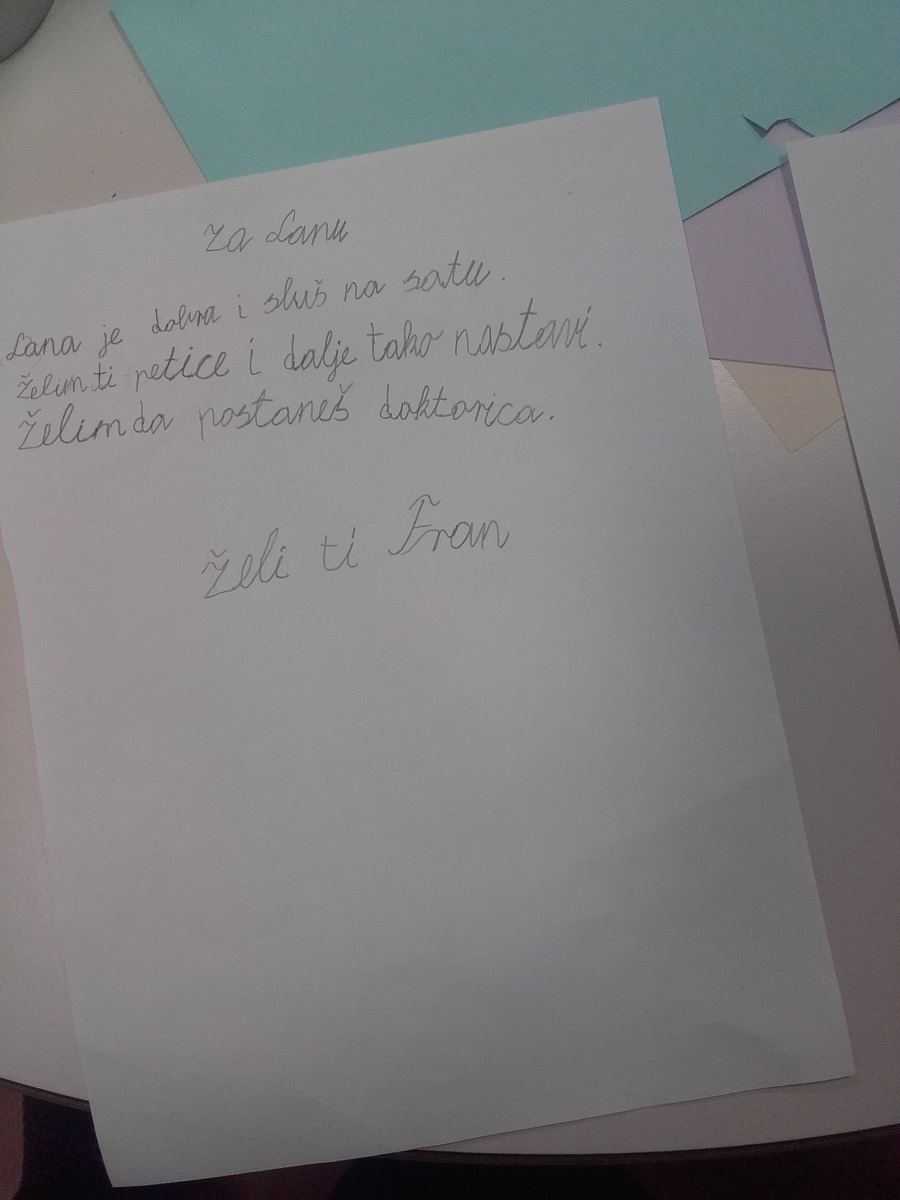 Za Lanu
Lana je dobra i sluš na satu.
Želim ti petice i dalje tako nastavi.
Želim da postaneš doktorica.
Želi ti Fran